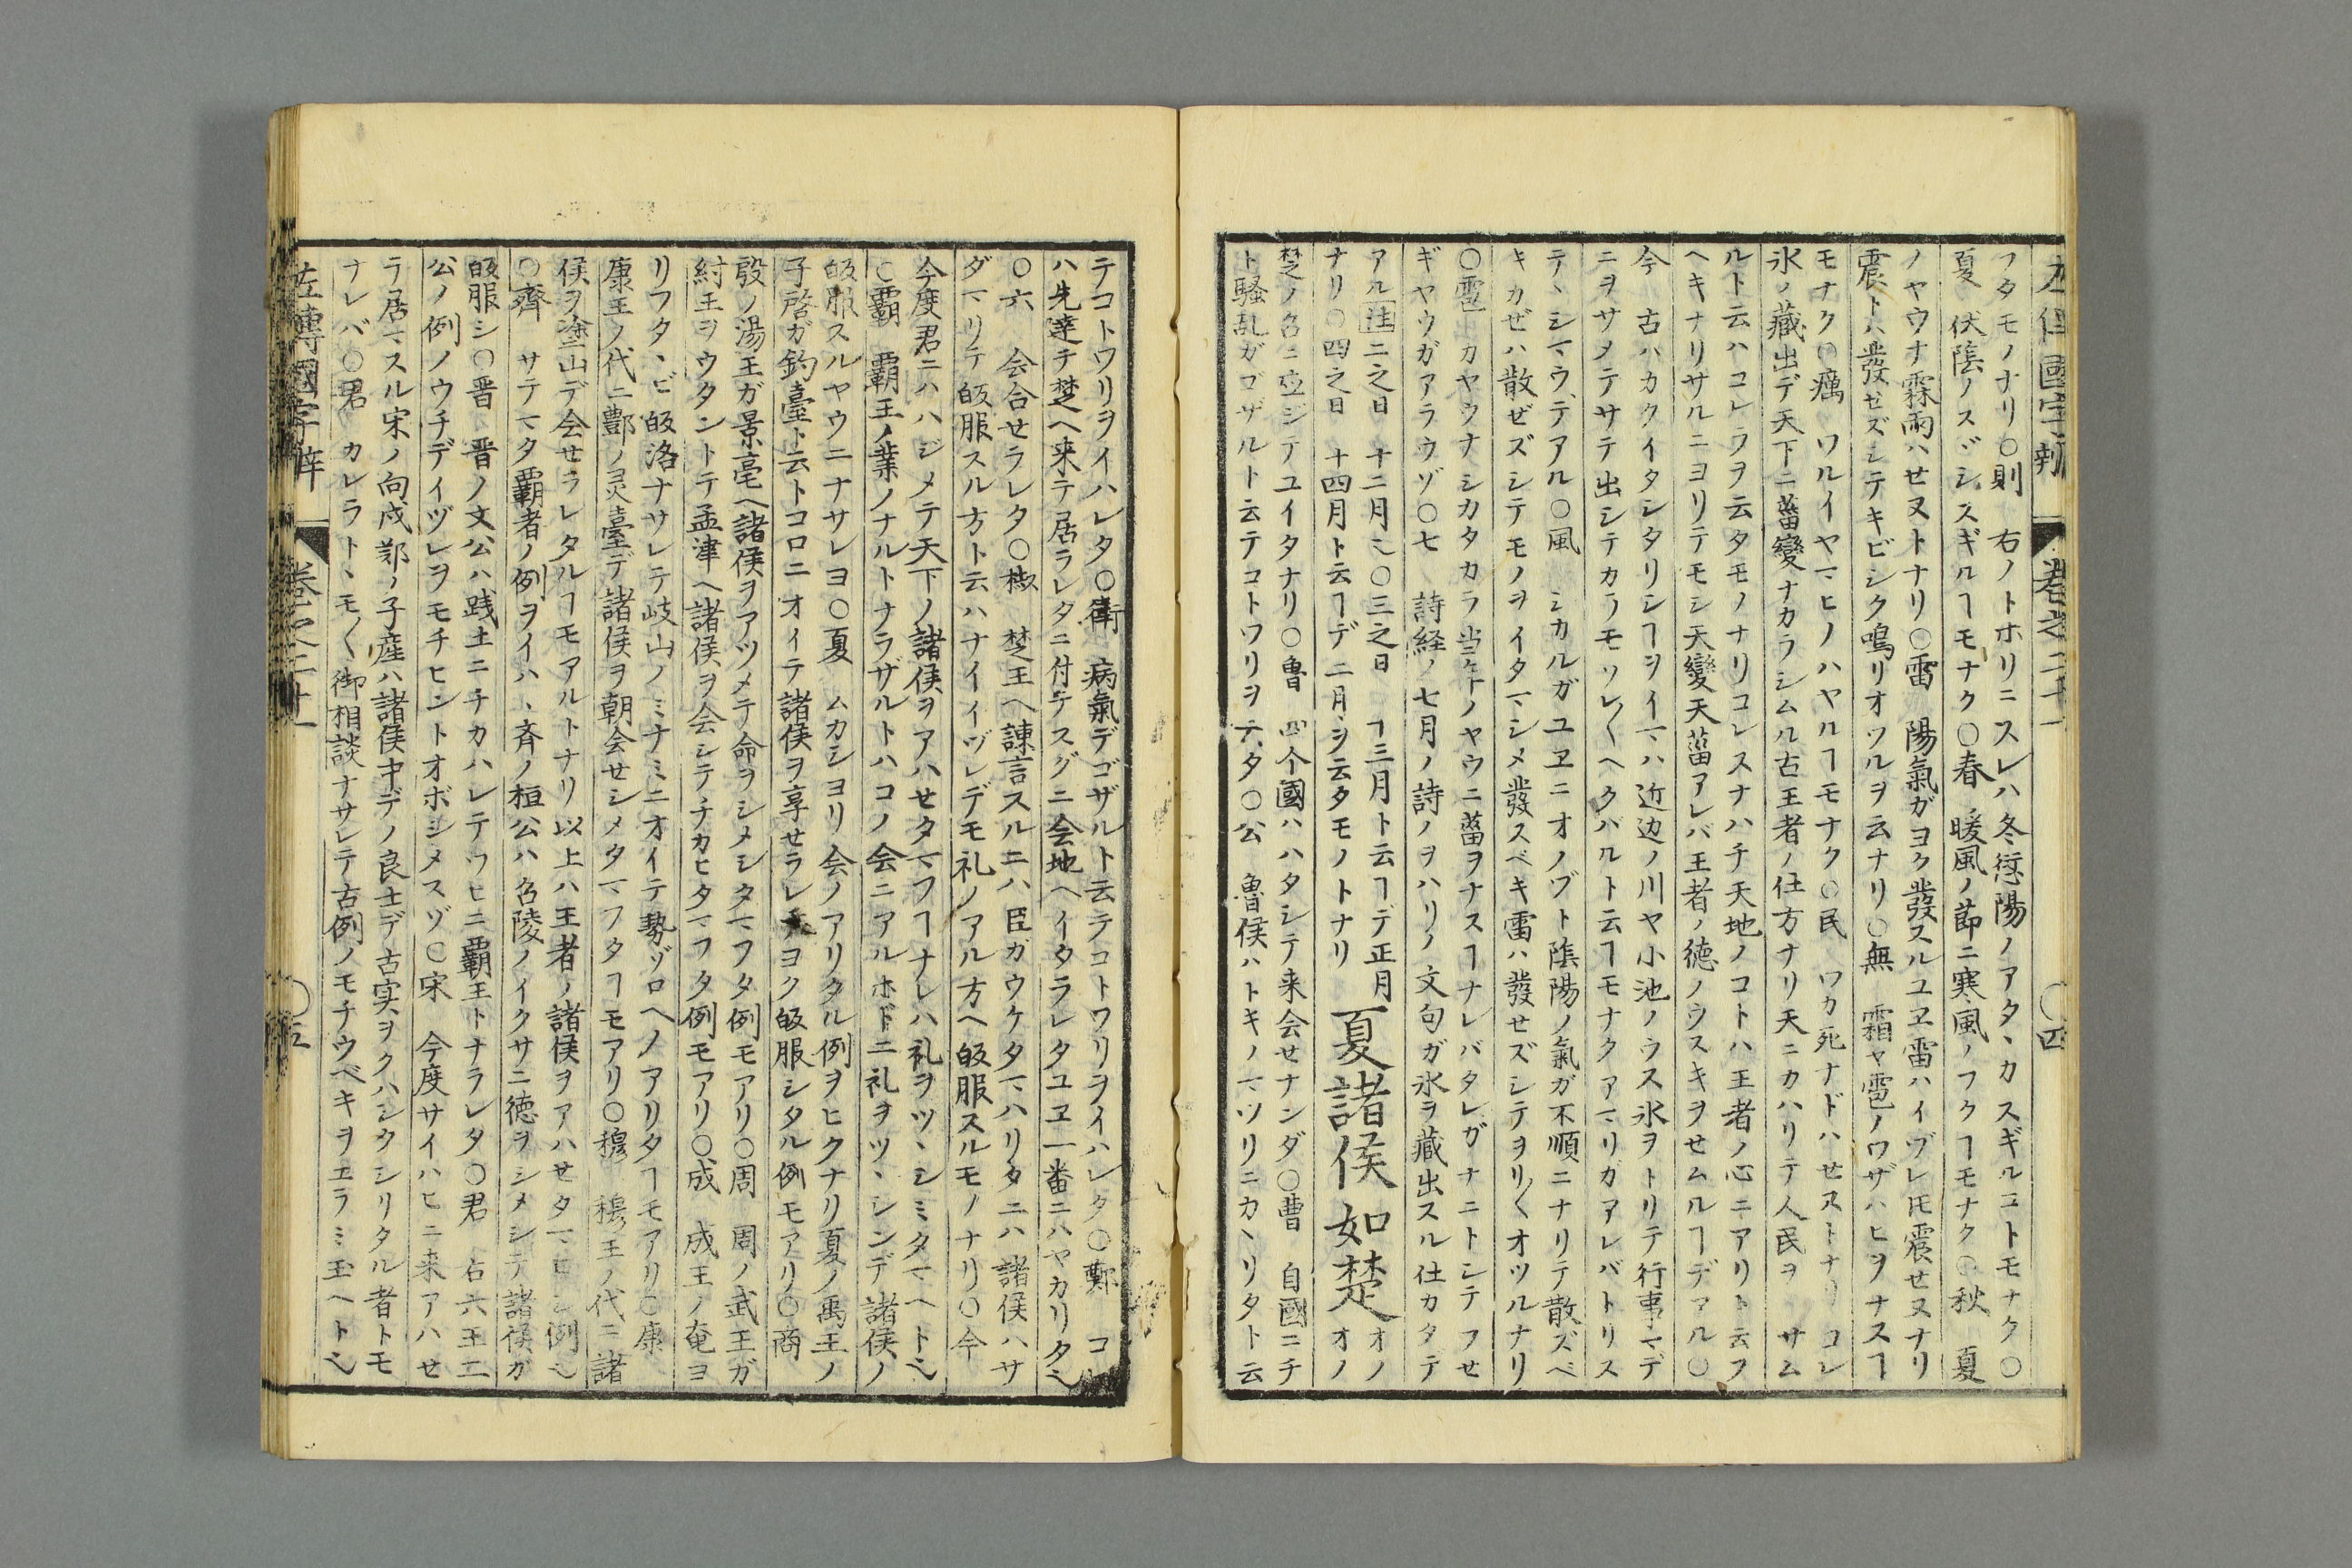 左傳國字辯 卷之二十一 〇四
フタモノナリ〇則 右ノトホリニスレハ冬愆陽ノアタヽカスギルコトモナク〇
夏 伏陰ノスヾシスギルヿモナク〇春 暖風ノ節ニ寒風ノフクヿモナク〇秋 夏
ノヤウナ霖雨ハせヌトナリ〇雷 陽氣ガヨク發スルユヱ雷ハイヅレ𪜈震せヌナリ
震トハ發ぜズシテキビシク鳴リオツルヲ云ナリ〇無 霜ヤ雹ノワザハヒヲナスヿ
モナク〇癘 ワルイヤマヒノハヤルヿモナク〇民 ワカ死ナドハせヌトナリ コレ
氷ノ藏出デ天下ニ菑變ナカラシムル古王者ノ仕方ナリ天ニカハリテ人民ヲ サム
ルト云ハコレラヲ云タモノナリコレスナハチ天地ノコトハ王者ノ心ニアリト云フ
ヘキナリサルニヨリテモシ天變天菑アレバ王者ノ德ノウスキヲせムルヿデアル〇
今 古ハカクイタシタリシヿヲイマハ近辺ノ川ヤ小池ノウス氷ヲトリテ行事マデ
ニヲサメテサテ出シテカラモソレ〳〵ヘクバルト云ヿモナクアマリガアレバトリス
テヽシマウテアル〇風 シカルガユヱニオノヅト陰陽ノ氣ガ不順ニナリテ散ズベ
キカぜハ散ぜズシテモノヲイタマシメ發スベキ雷ハ發せズシテヲリ〳〵オツルナリ
〇雹 カヤウナシカタカラ当年ノヤウニ菑ヲナスヿナレバタレガナニトシテフせ
ギヤウガアラウゾ〇七 詩経ノ七月ノ詩ノヲハリノ文句ガ氷ヲ藏出スル仕カタデ
アル注二之日 十二月〇三之日 ヿ三月ト云ヿデ正月
ナリ〇四之日 十四月ト云ヿデ二月ヲ云タモノトナリ
夏諸侯如楚
オノオノ
楚ノ召ニ應ジテユイタナリ〇魯 四个國ハハタシテ来会せナンダ〇曹 自國ニチ
ト騒乱ガゴザルト云テコトワリヲ云タ〇公 魯侯ハトキノマツリニカヽリタト云
テコトワリヲイハレタ〇衛 病氣デゴザルト云テコトワリヲイハレタ〇鄭 コレ
ハ先達テ楚ヘ来テ居ラレタニ付テスグニ会地ヘイタラレタユヱ一番ニハヤカリタ也
〇六 会合せラレタ〇椒 楚王ヘ諌言スルニハ臣ガウケタマハリタニハ諸侯ハサ
ダマリテ皈服スル方ト云ハナイイヅレデモ礼ノアル方ヘ皈服スルモノナリ〇今
今度君ニハハジメテ天下ノ諸侯ヲアハせタマフヿナレハ礼ヲツヽシミタマヘト也
〇覇 覇王ノ業ノナルトナラザルトハコノ会ニアルホドニ礼ヲツヽシンデ諸侯ノ
皈服スルヤウニナサレヨ〇夏 ムカシヨリ会ノアリタル例ヲヒクナリ夏ノ禹王ノ
子啓ガ釣臺ト云トコロニオイテ諸侯ヲ享せラレテヨク皈服シタル例モアリ〇商
殷ノ湯王ガ景亳ヘ諸侯ヲアツメテ命ヲシメシタマフタ例モアリ〇周 周ノ武王ガ
紂王ヲウタントテ孟津ヘ諸侯ヲ会シテチカヒタマフタ例モアリ〇成 成王ノ奄ヨ
リフタヽビ皈洛ナサレテ岐山ノミナミニオイテ勢ゾロヘノアリタヿモアリ〇康
康王ノ代ニ酆ノ灵臺デ諸侯ヲ朝会せシメタマフタヿモアリ〇穆 穆王ノ代ニ諸
侯ヲ塗山デ会せラレタルヿモアルトナリ以上ハ王者ノ諸侯ヲアハせタマヒシ例也
〇齊 サテマタ覇者ノ例ヲイハヽ斉ノ桓公ハ召陵ノイクサニ徳ヲシメシテ諸侯ガ
皈服シ〇晋 晋ノ文公ハ践土ニチカハレテツヒニ覇王トナラレタ〇君 右六王二
公ノ例ノウチデイヅレヲモチヒントオボシメスゾ〇宋 今度サイハヒニ来アハせ
テ居マスル宋ノ向戌鄭ノ子産ハ諸侯中デノ良士デ古実ヲクハシウシリタル者トモ
ナレバ〇君 カレラトヽモ〳〵御相談ナサレテ古例ノモチウベキヲエラミ玉ヘト也
左傳國字辯 卷之二十一 〇五